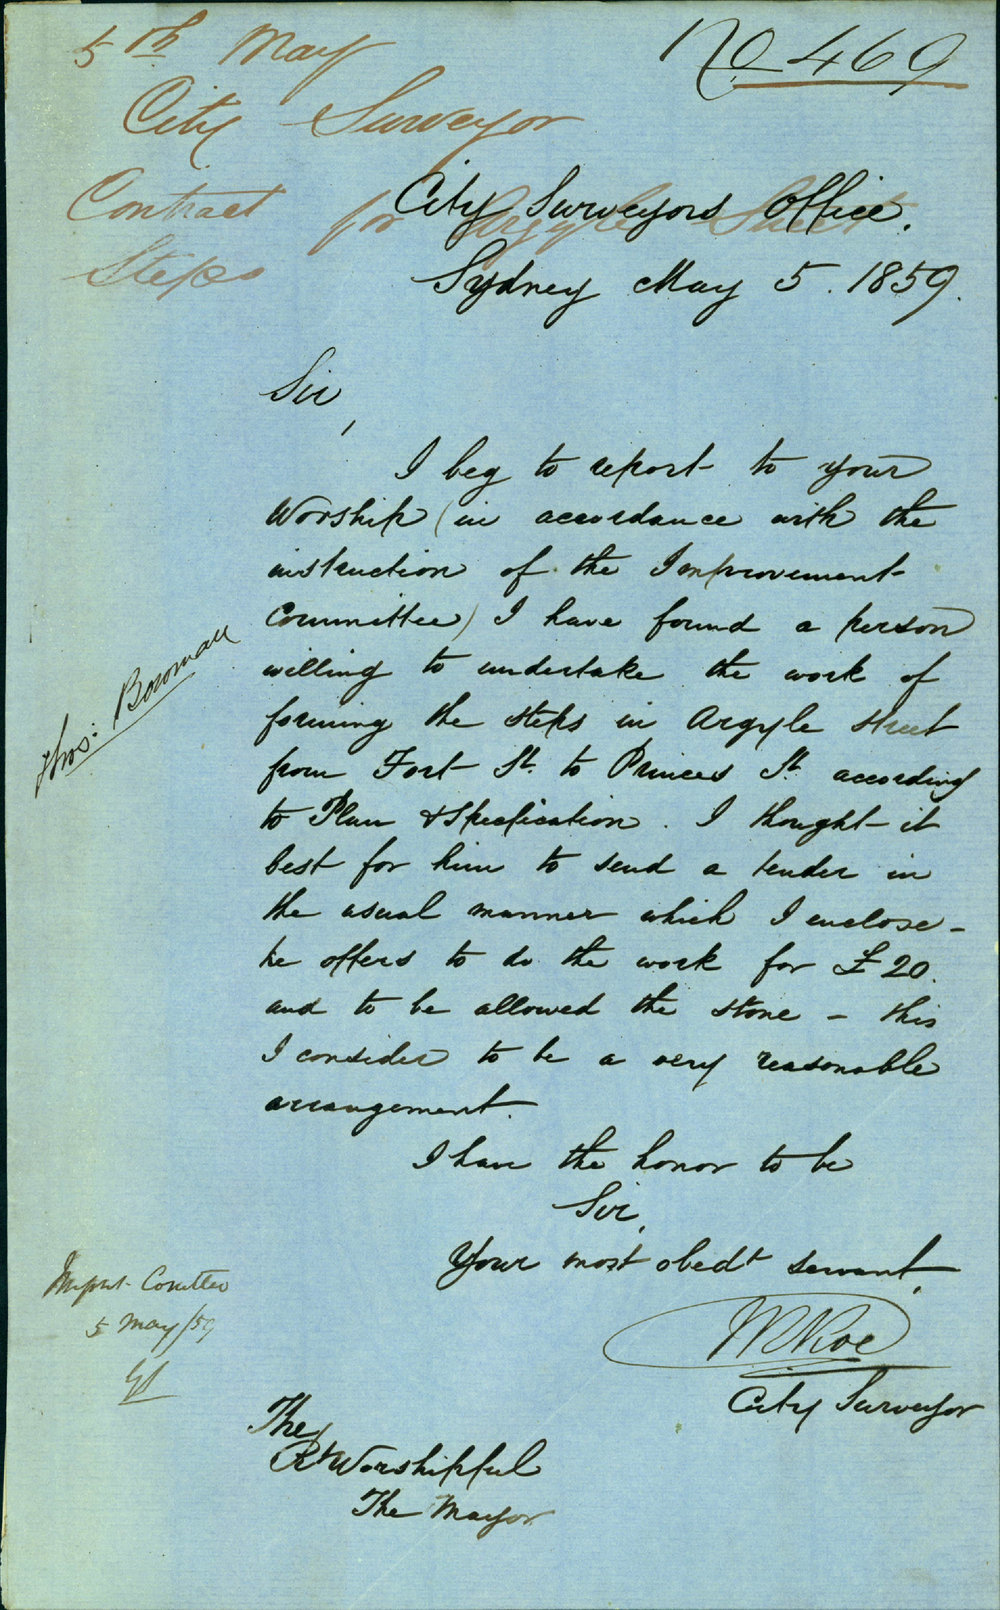 5th May
No 469
City Surveyor
Contract for Argyle Street
Steps
City Surveyors Office.
Sydney May 5. 1859.
Sir,
I beg to report to your
Worship (in accordance with the
instruction of the Improvement
Committee) I have found a person
willing to undertake the work of
forming the steps in Argyle Street
from Fort St. to Princes St. according
to Plan & Specification. I thought it
best for him to send a tender in
the usual manner which I enclose -
he offers to do the work for £20.
and to be allowed the stone - this
I consider to be a very reasonable
arrangement.
I have the honor to be
Sir,
Your most obedt servant,
City Surveyor
The
Rt Worshipful
The Mayor
Thos: Bowman
Impt. Comttee
5 May/59